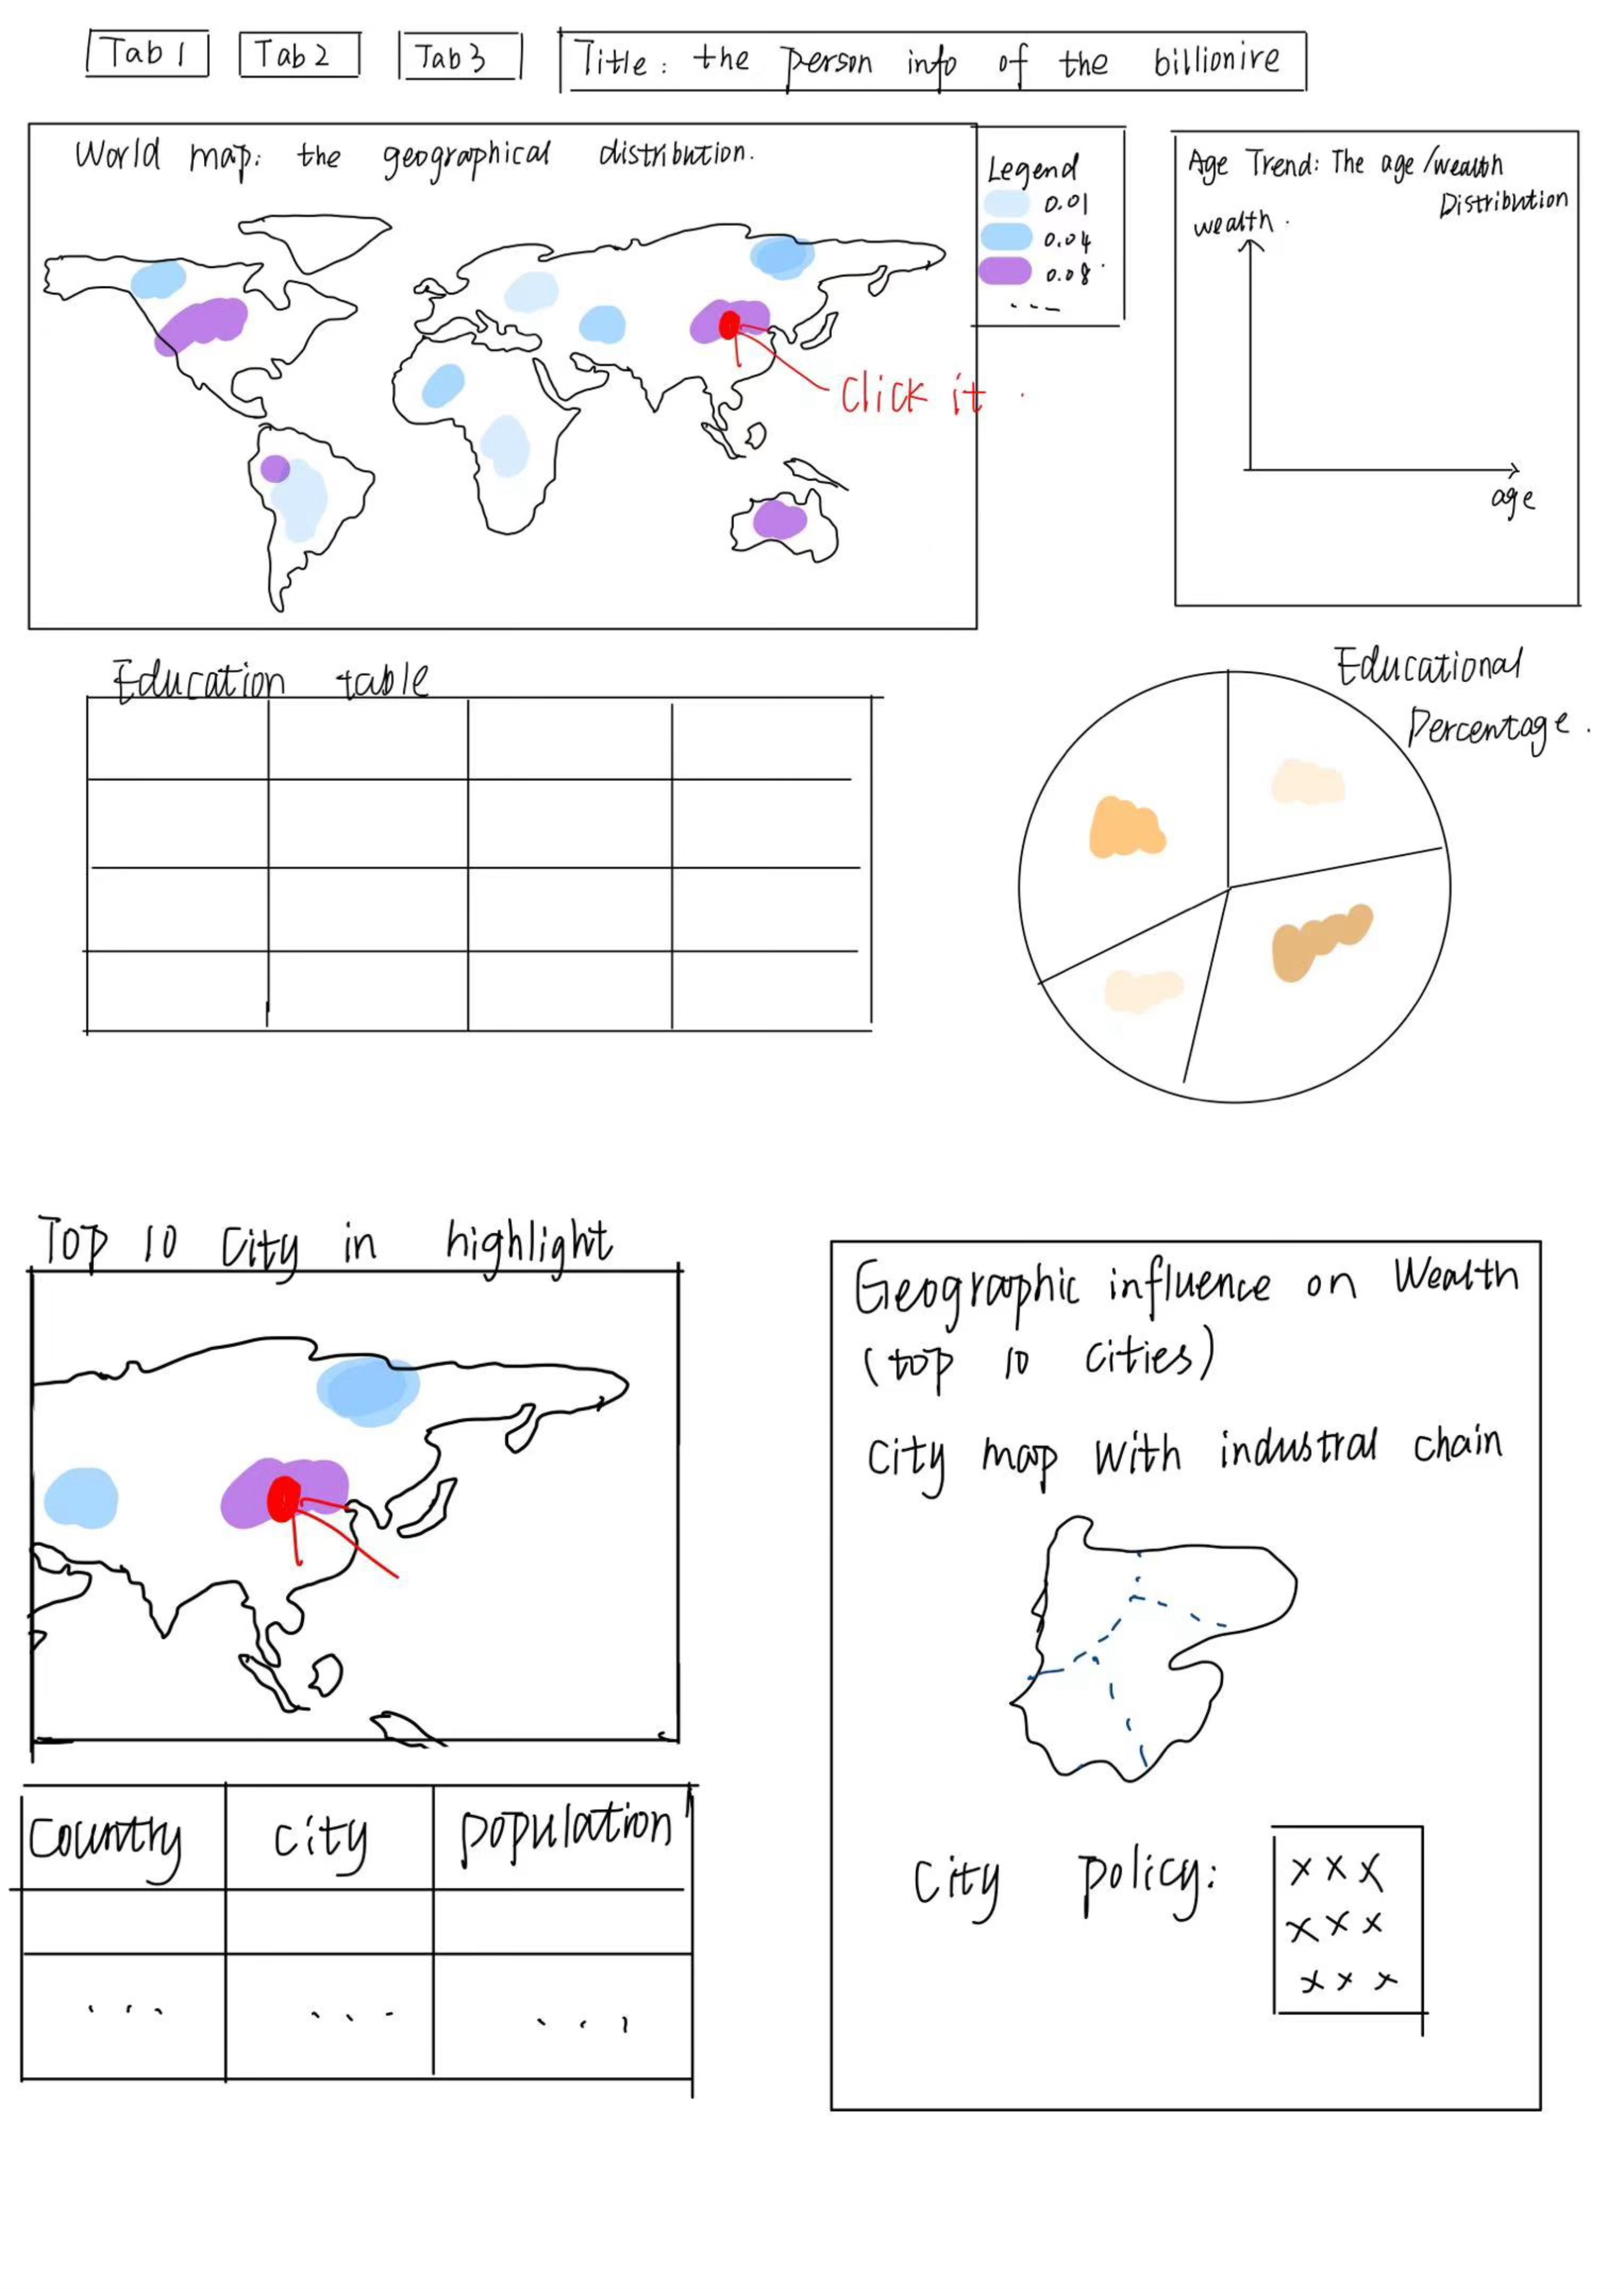 Tab 1
Tab 2
Tab 3
Title: the person info of the billionire
World map: the geographical distribution.
Legend
0.01
0.04
0.08
Click it
Age Trend: The age/wealth
Distribution
wealth.
age
Education table
Educational
Percentage.
Top 10 City in highlight
Country
city
population
Geographic influence on Wealth
(top 10 cities)
City map with industral chain
City policy:
x x x
x x x
x x x